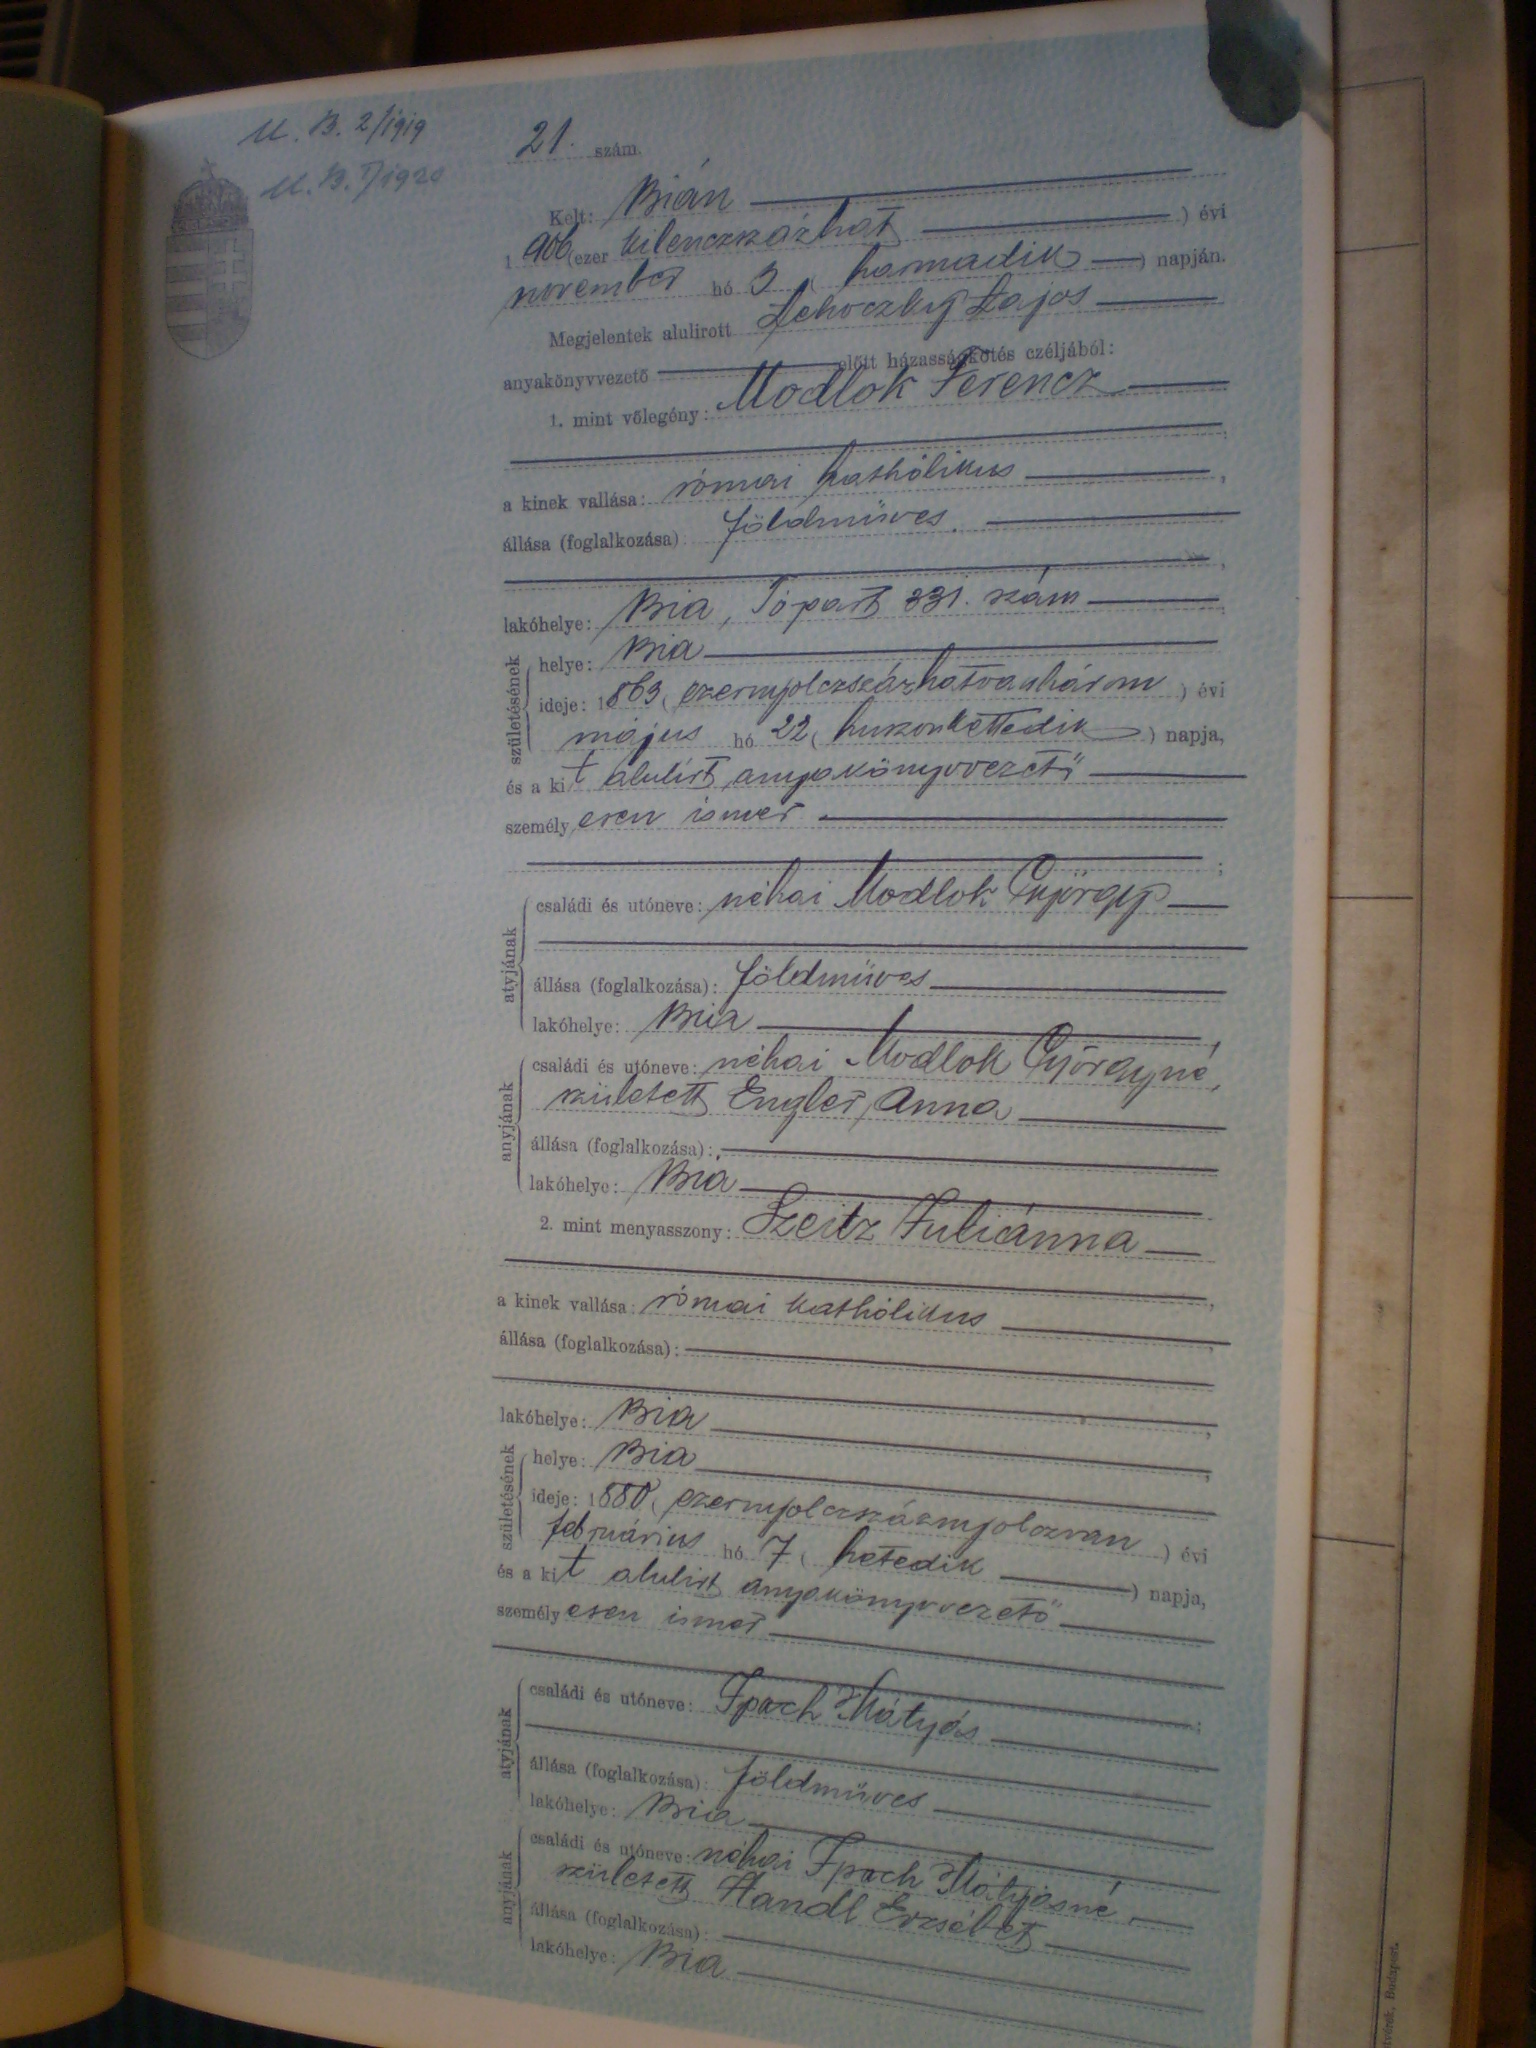 U. B. 2/1919
U. B. 7/1920
21. szám.
Kelt: Bián
1906 (ezer kilenczszázhat) évi
november hó 3 (harmadik) napján.
Megjelentek alulirott Lehoczky Lajos
anyakönyvvezető előtt házasságkötés czéljából:
1. mint vőlegény: Modlok Ferencz
a kinek vallása: római katholikus
állása (foglalkozása) földmüves.
lakóhelye: Bia, Tópart 331. szám
születésének
helye: Bia
ideje: 1863 (ezernyolczszázhatvanhárom) évi
május hó 22 (huszonkettedik) napja,
és a kit alulirt anyakönyvvezető
személyesen ismer
;
atyjának
családi és utóneve: néhai Modlok György
állása (foglalkozása): földmüves
lakóhelye: Bia
anyjának
családi és utóneve: néhai Modlok Györgyné,
született Engler Anna
állása (foglalkozása):
lakóhelye: Bia
2. mint menyasszony: Szeitz Juliánna
a kinek vallása: római katholikus
állása (foglalkozása):
lakóhelye: Bia
születésének
helye: Bia
ideje: 1880 (ezernyolczszáznyolczvan) évi
február​ius hó 7 (hetedik) napja,
és a kit alulirt anyakönyvvezető
személyesen ismer
;
atyjának
családi és utóneve: Mátyás
állása (foglalkozása): földmüves
lakóhelye: Bia
anyjának
családi és utóneve: néhai Mátyásné,
született Handl Erzsébet
állása (foglalkozása):
lakóhelye: Bia
Budapest.